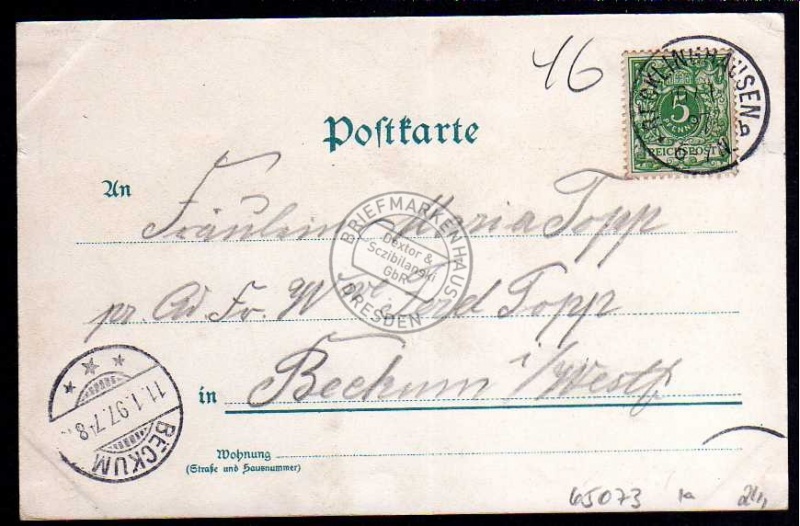 46
RECKLINGHAUSEN
5
PFENNIG
REICHSPOST
6-7N.
Postkarte
An
Fräulein Maria Topp
pr. Ad. Fr. Wwe. Topp
in Beckum i/Westf
BRIEFMARKENHAUS
Dextor &
Sczibilanski
GbR
DRESDEN
11.1.97.7-8
BECKUM
Wohnung
(Straße und Hausnummer)
65073 1a